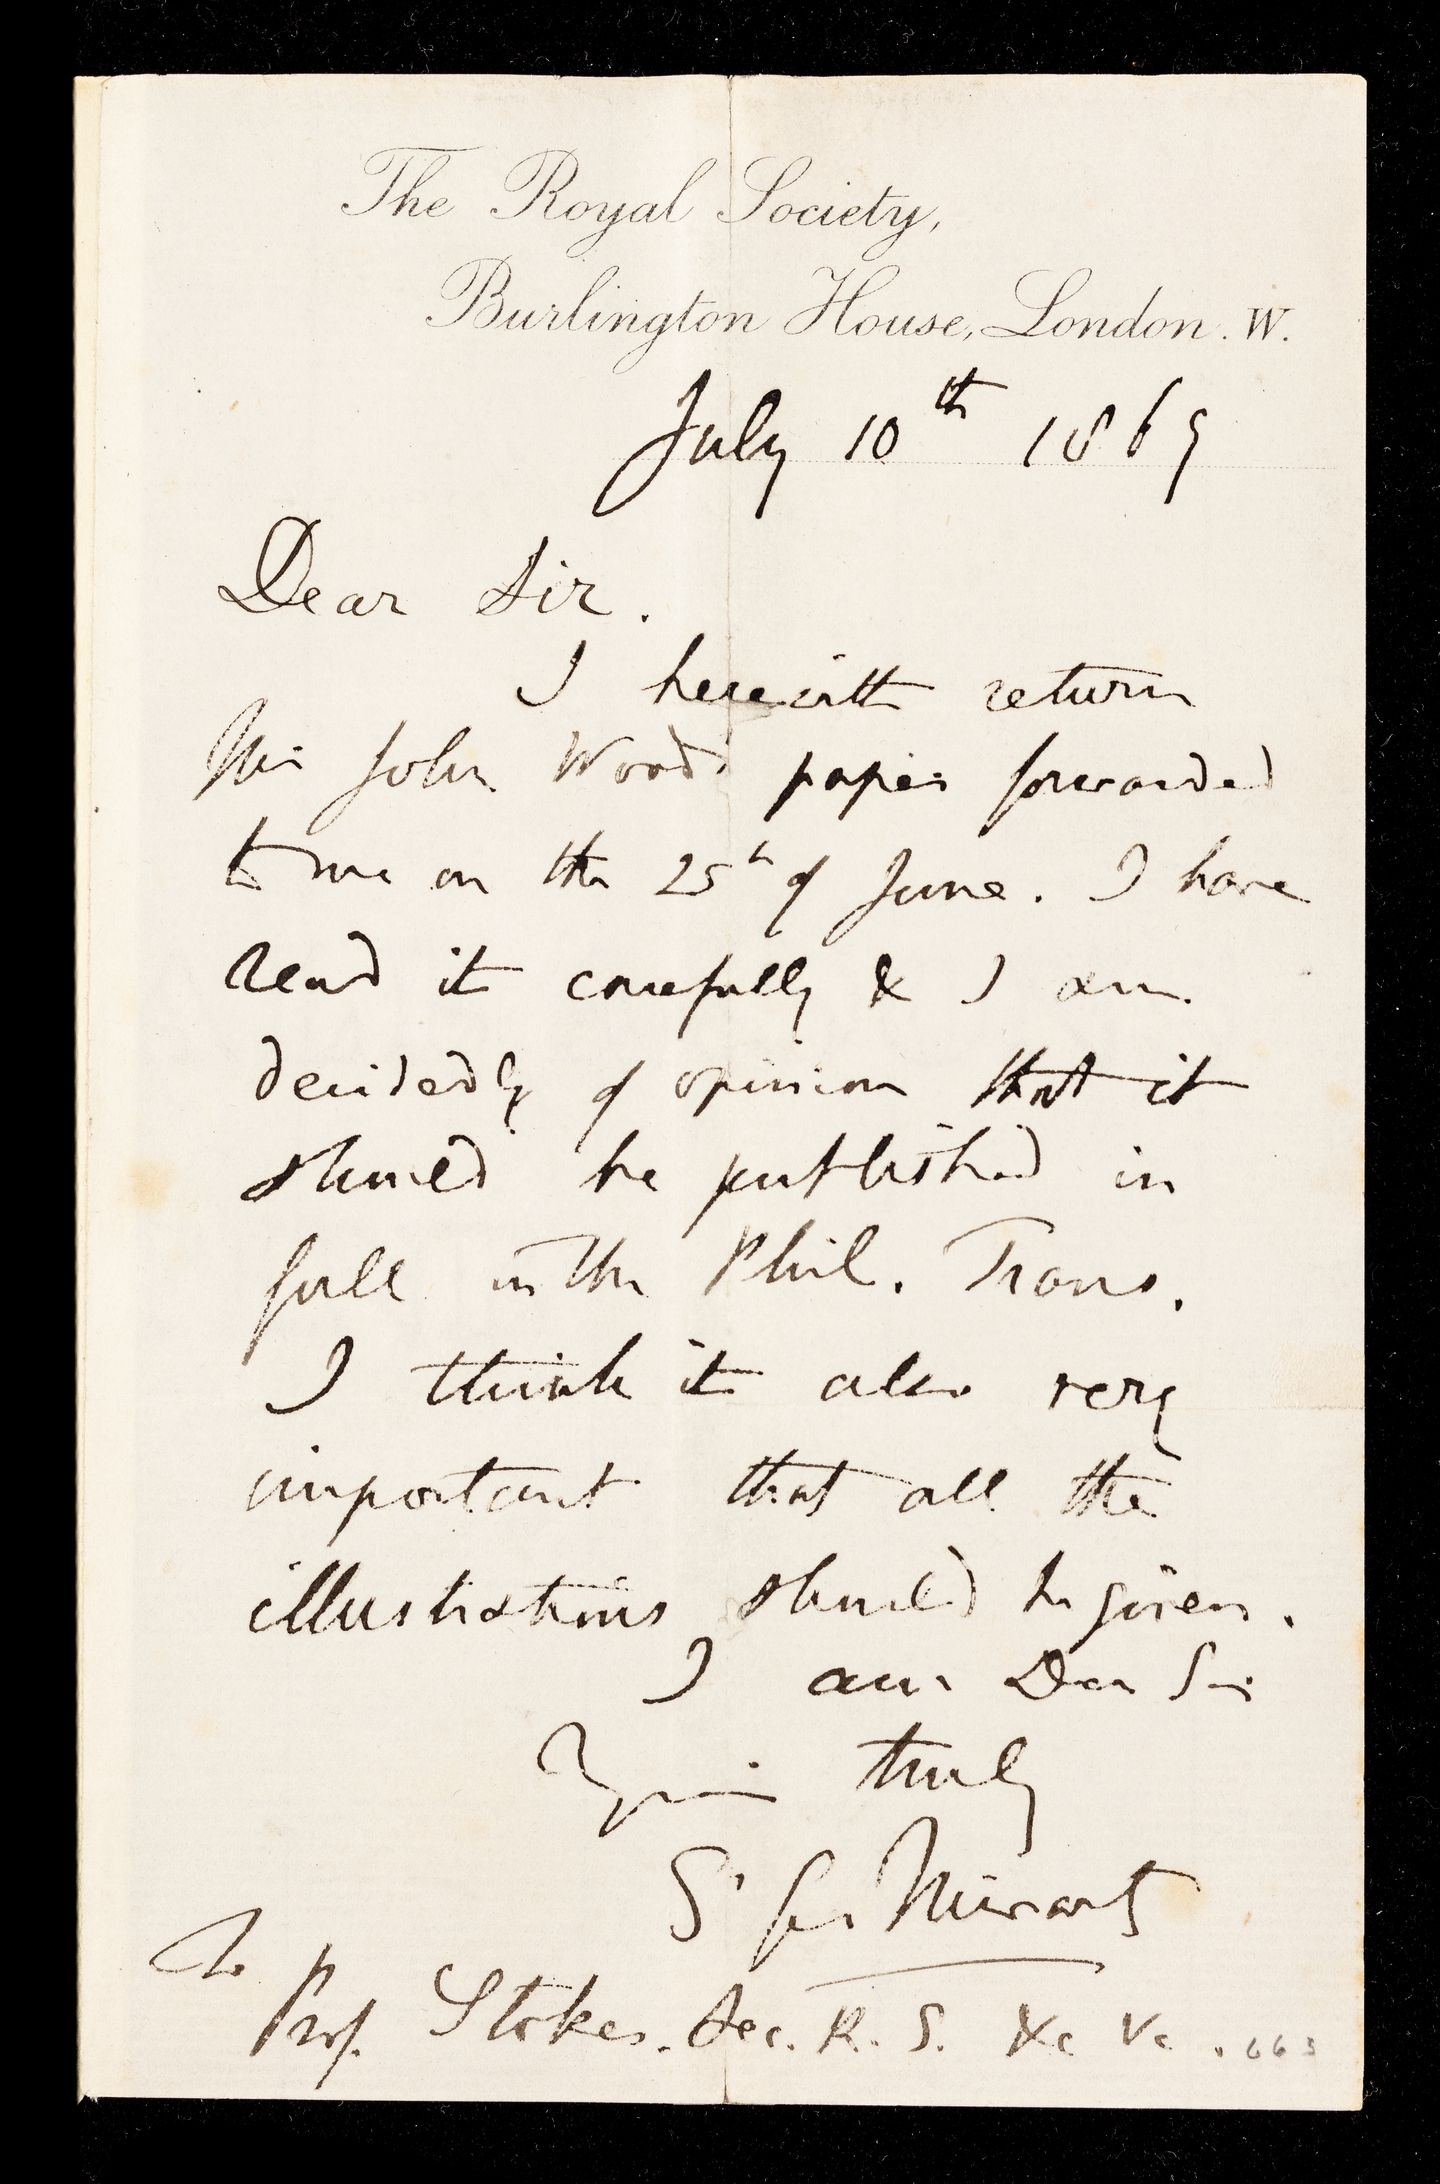 The Royal Society,
Burlington House, London. W.
July 10th 1869
Dear Sir.
I herewith return
Mr John Wood's paper forwarded
to me on the 25th of June. I have
read it carefully & I am
decidedly of opinion that it
should be published in
full in the Phil. Trans.
I think it also very
important that all the
illustrations should be given.
I am Dear Sir
Yours truly
St Geo Mivart
To
Prof. Stokes. Sec. R. S. &c &c.